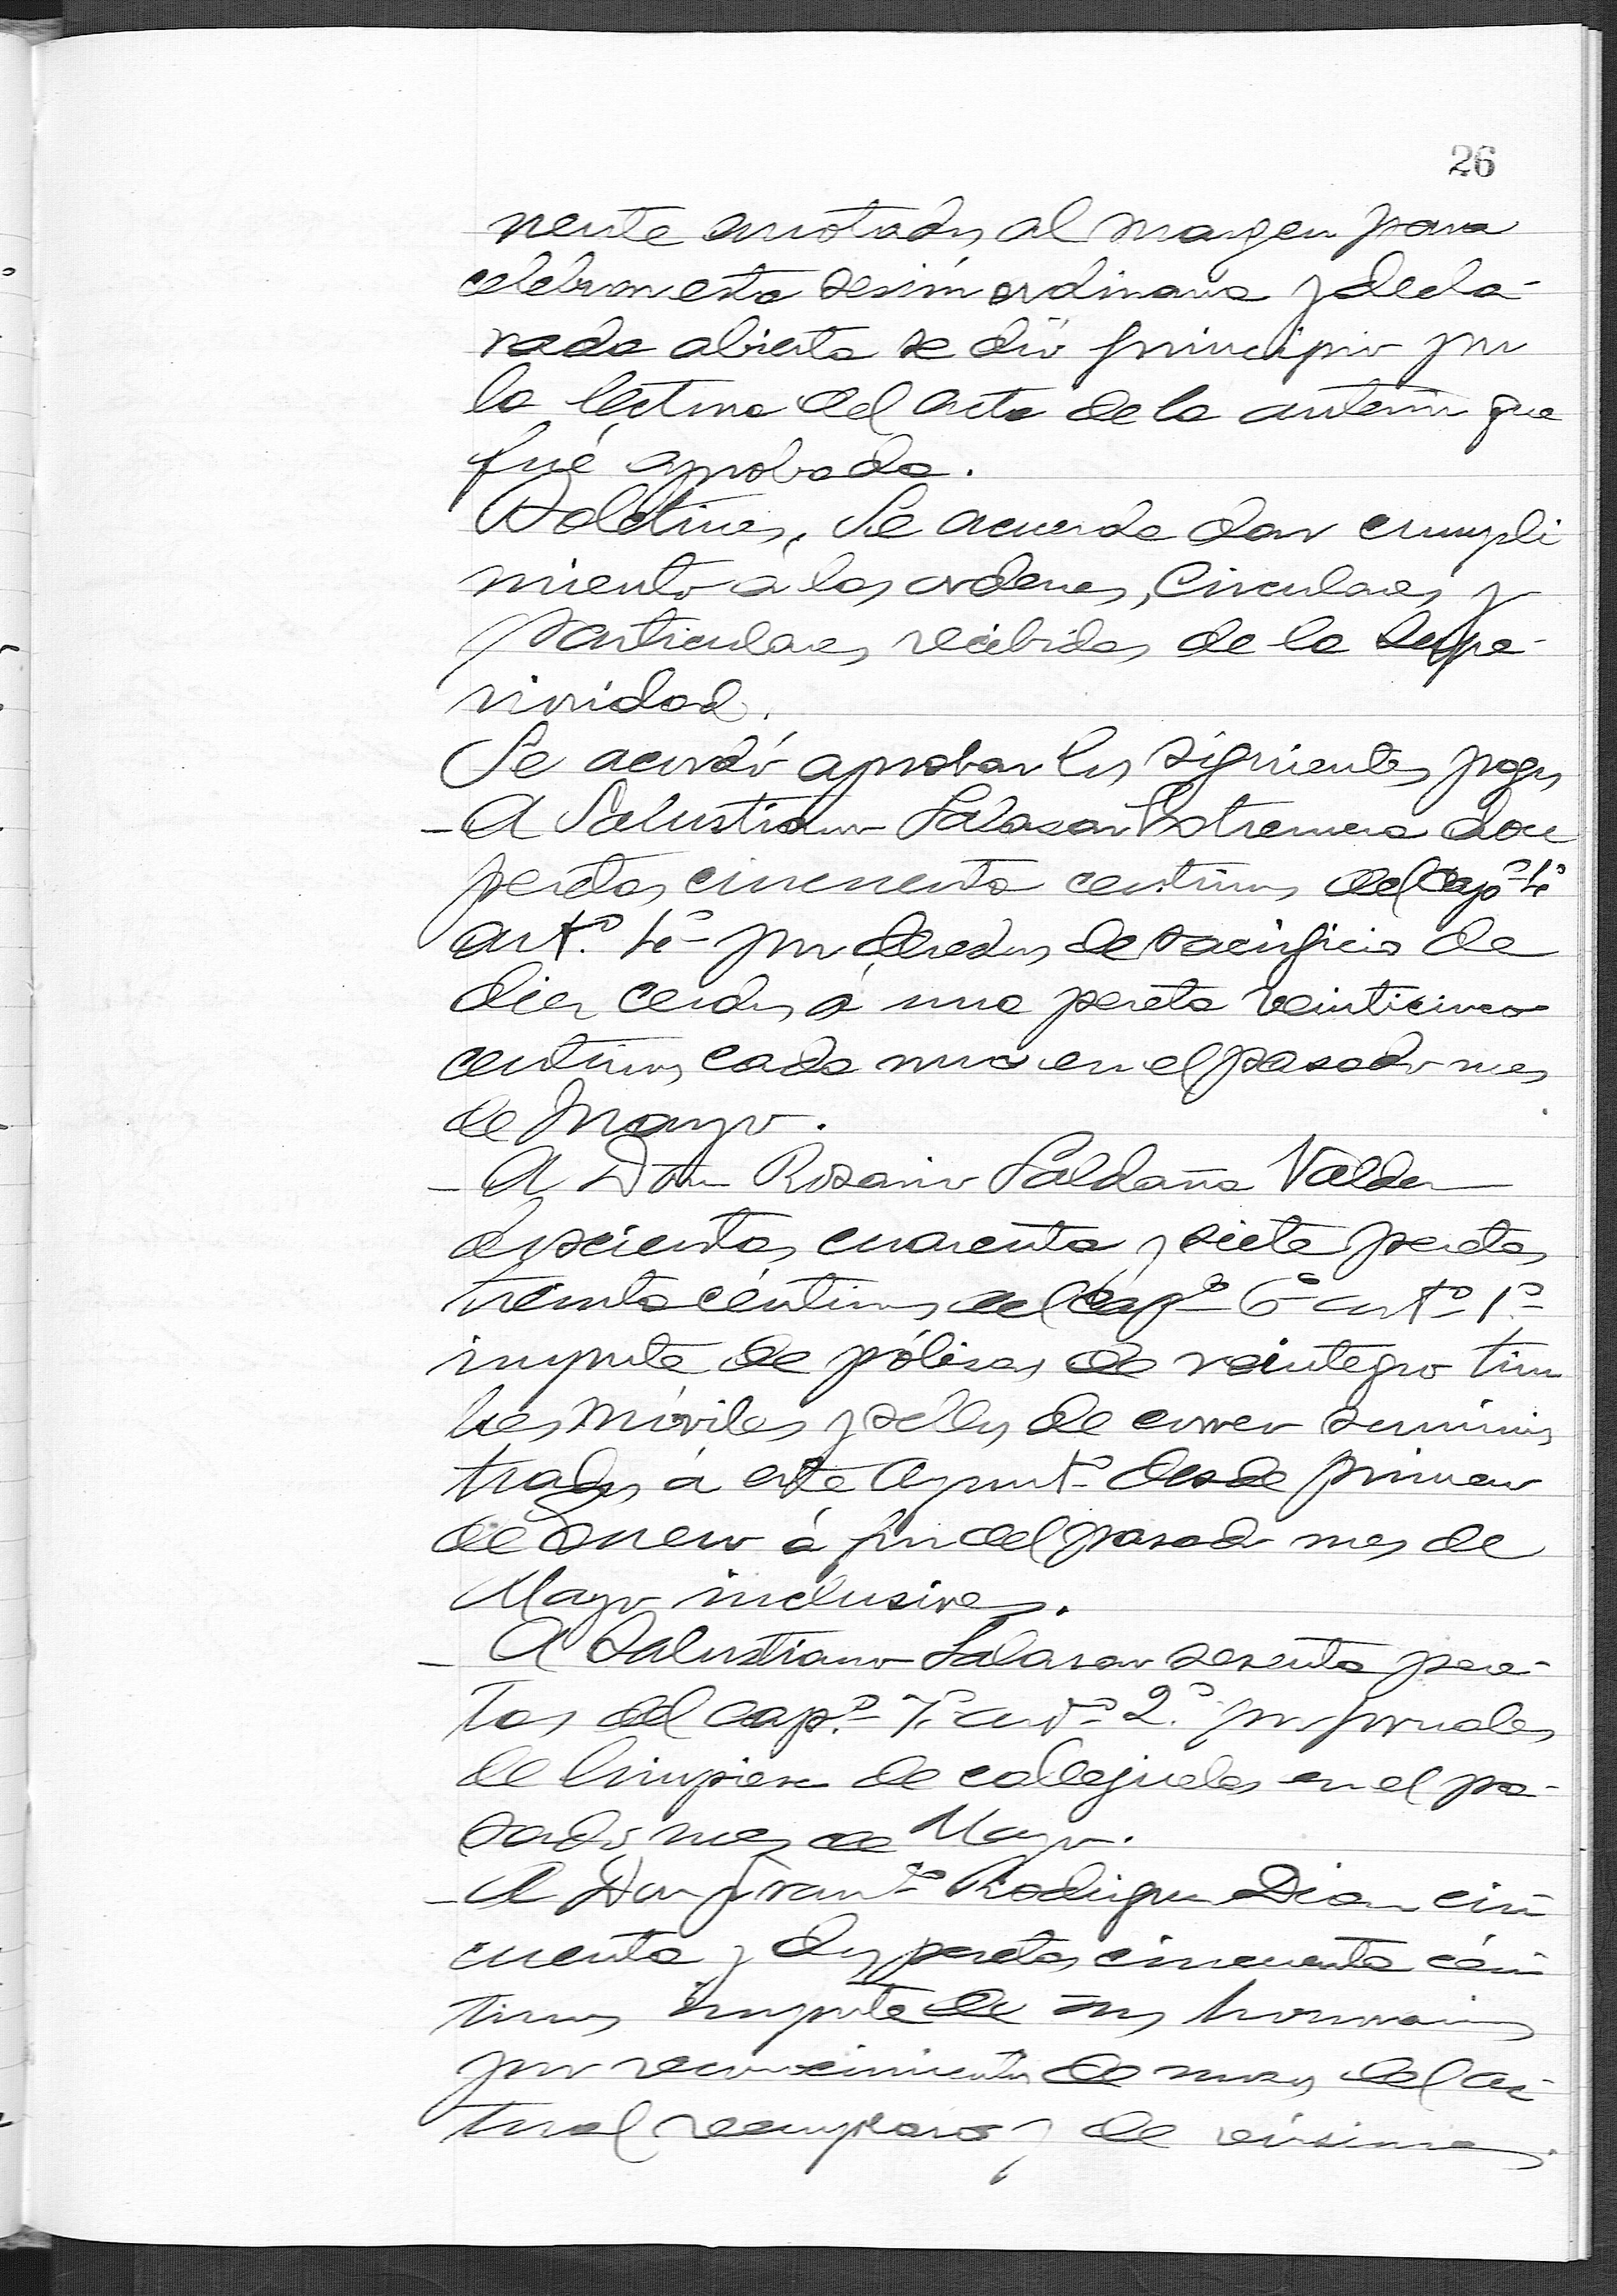 26
nente anotados al margen para
celebrar esta sesión ordinaria y decla-
rada abierta se dió principio por
la lectura del acta de la anterior que
fué aprobada.
Boletines. Se acuerda dar cumpli
miento a las ordenes, circulares y
particulares recibidas de la Supe-
rioridad.
Se acordó aprobar los siguientes pagos
- A Salustiano Salasar Estremera doce
pesetas cincuenta centimos del capº 4º
artº. 4º por derechos de sacrificio de
diez cerdos á una peseta veinticinco
centimos cada uno en el pasado mes
de Mayo.
- A Don Rosario Saldaña Valder
doscientas cuarenta y siete pesetas
treinta céntimos del capº 6º artº 1º
importe de pólizas de reintegro tim
bres móviles y sellos de correo suminis
trados á este Ayuntº desde primero
de Enero á fin del pasado mes de
Mayo inclusive.
- A Salustiano Salasar sesenta pese-
tas del capº. 7º artº 2º por jornales
de limpieza de callejuelas en el pa-
sado mes de Mayo.
- A Don Francº Rodriguez Diaz cin
cuenta y dos pesetas cincuenta cén
timos importe de sus honorarios
por reconocimientos de mozos del ac
tual reemplazo y de revisiones.